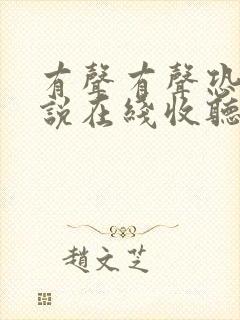 有聲有聲恐
說在綫收聽
趙文芝